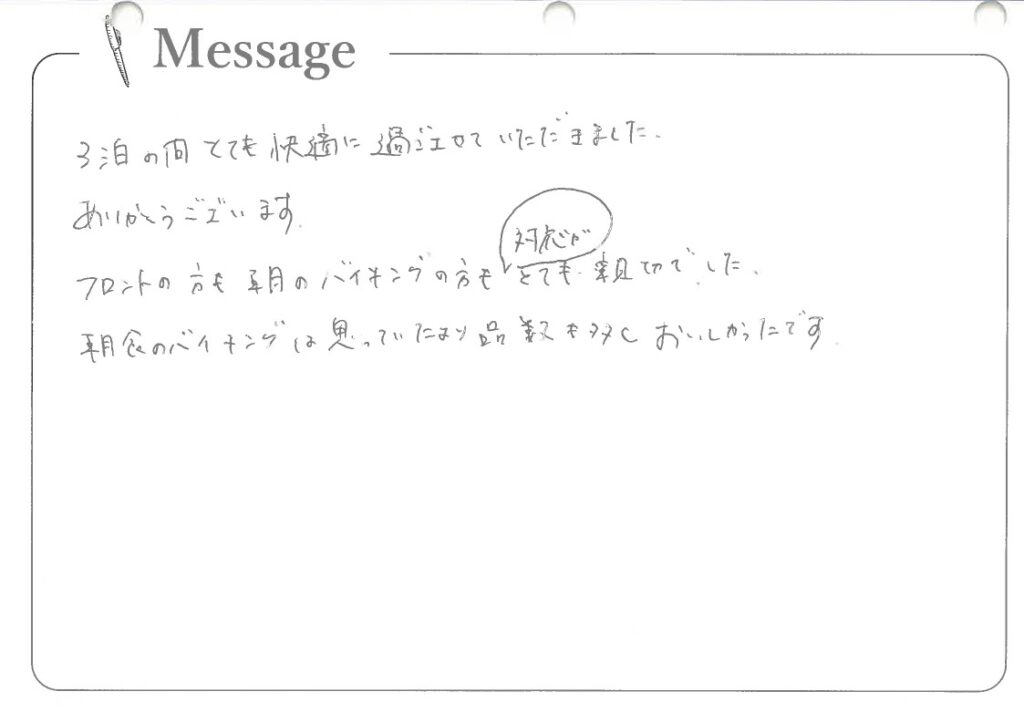 Message
3泊の間とても快適に過ごせて いただきました。
ありがとうございます。
フロントの方も朝のバイキングの方も対応がとても親切でした。
朝食のバイキングは思っていたより品数も多くおいしかったです。